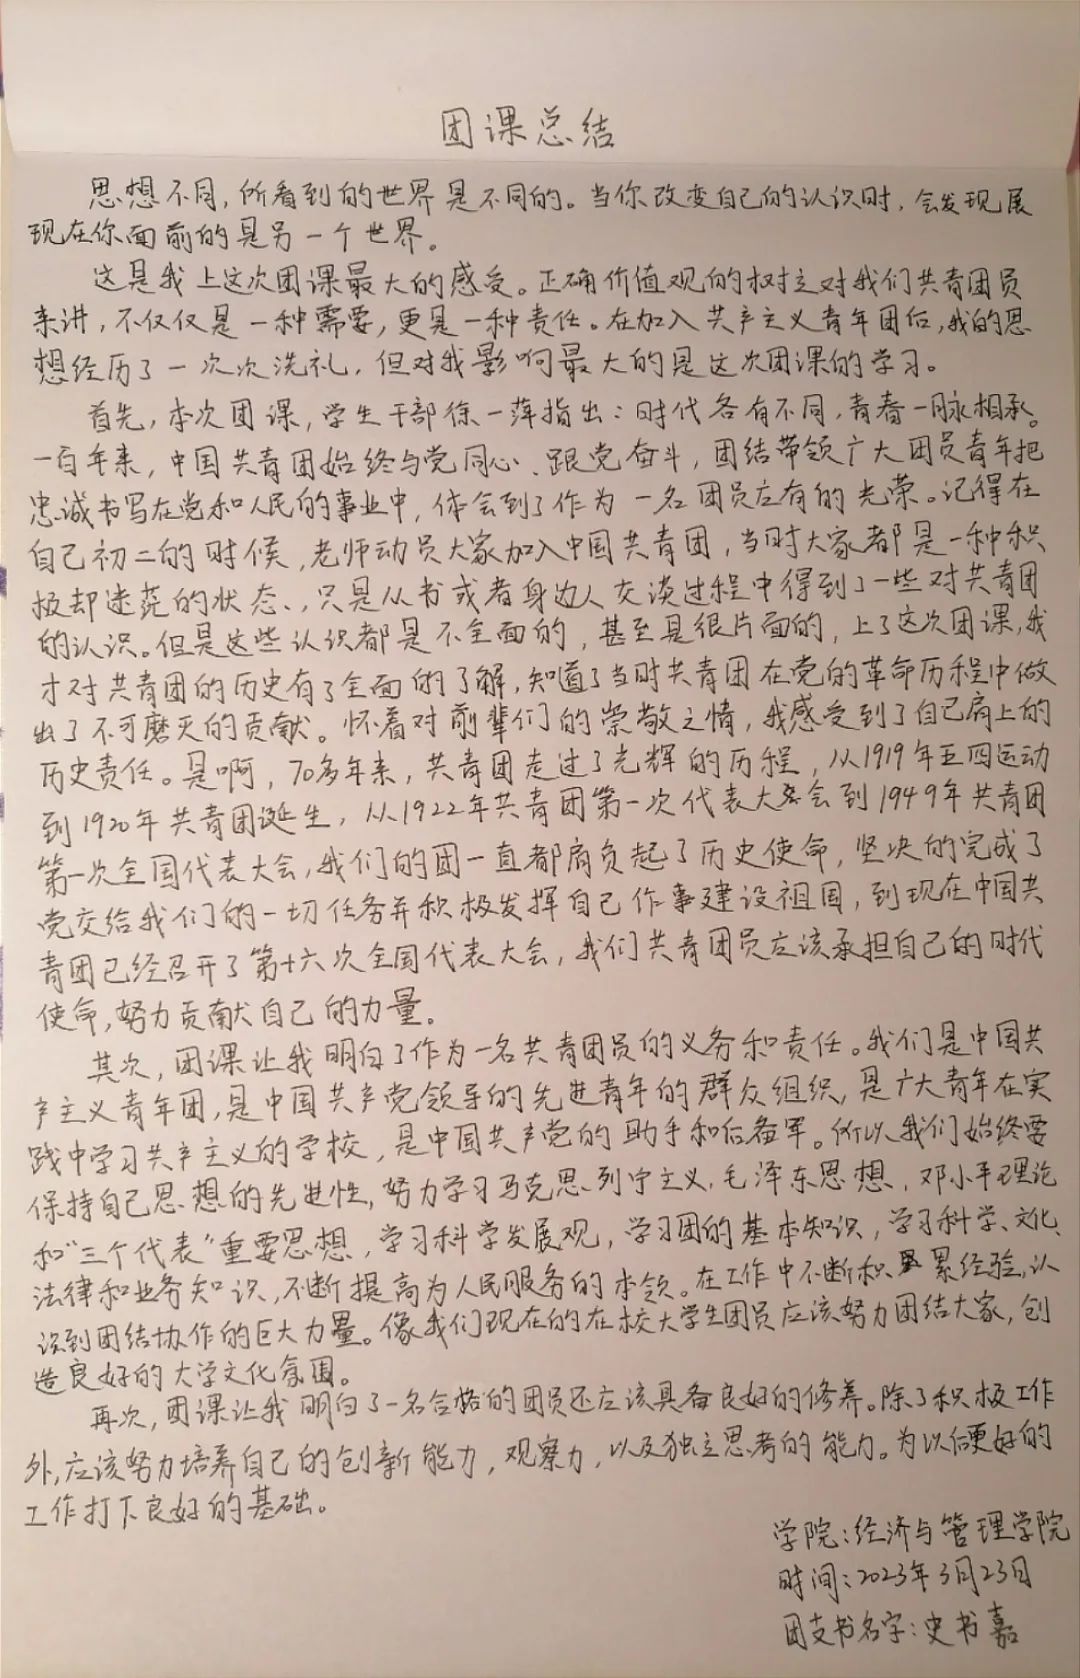 团课总结
思想不同,所看到的世界是不同的。当你改变自己的认识时,会发现展
现在你面前的是另一个世界。
这是我上这次团课最大的感受。正确价值观的树立对我们共青团员
来讲,不仅仅是一种需要,更是一种责任。在加入共产主义青年团后,我的思
想经历了一次次洗礼,但对我影响最大的是这次团课的学习。
首先,本次团课,学生干部徐一萍指出:时代各有不同,青春一脉相承。
一百年来,中国共青团始终与党同心、跟党奋斗,团结带领广大团员青年把
忠诚书写在党和人民的事业中,体会到了作为一名团员应有的光荣。记得在
自己初二的时候,老师动员大家加入中国共青团,当时大家都是一种积
极却迷茫的状态、,只是从书或者身边人交谈过程中得到了一些对共青团
的认识。但是这些认识都是不全面的,甚至是很片面的,上了这次团课,我
才对共青团的历史有了全面的了解,知道了当时共青团在党的革命历程中做
出了不可磨灭的贡献。怀着对前辈们的崇敬之情,我感受到了自己肩上的
历史责任。是啊,70多年来,共青团走过了光辉的历程,从1919年五四运动
到1920年共青团诞生,从1922年共青团第一次代表大会到1949年共青团
第一次全国代表大会,我们的团一直都肩负起了历史使命,坚决的完成了
党交给我们的一切任务并积极发挥自己作事建设祖国,到现在中国共
青团已经召开了第十六次全国代表大会,我们共青团员应该承担自己的时代
使命,努力贡献自己的力量。
其次,团课让我明白了作为一名共青团员的义务和责任。我们是中国共
产主义青年团,是中国共产党领导的先进青年的群众组织,是广大青年在实
践中学习共产主义的学校,是中国共产党的助手和后备军。所以我们始终要
保持自己思想的先进性,努力学习马克思列宁主义,毛泽东思想,邓小平理论
和“三个代表”重要思想,学习科学发展观,学习团的基本知识,学习科学、文化、
法律和业务知识,不断提高为人民服务的本领。在工作中不断积累经验,认
识到团结协作的巨大力量。像我们现在的在校大学生团员应该努力团结大家,创
造良好的大学文化氛围。
再次,团课让我明白了一名合格的团员还应该具备良好的修养。除了积极工作
外,应该努力培养自己的创新能力,观察力,以及独立思考的能力。为以后更好的
工作打下良好的基础。
学院:经济与管理学院
时间:2023年3月23日
团支书名字:史书嘉